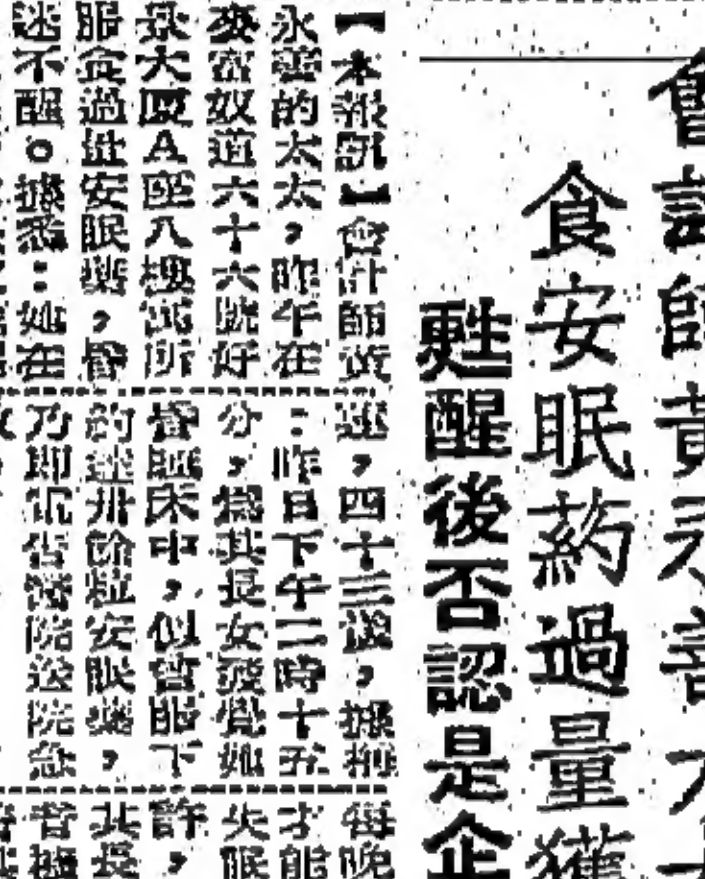 會計師黃永善太
食安眠葯過量獲
甦醒後否認是企
【本報訊】會計師黃
永善的太太，昨午在
麥當奴道六十六號好
景大厦A座八樓寓所
服食過量安眠藥，昏
迷不醒。據悉：她在
四十三歲，據
：昨日下午二時十五
分，為其長女發覺她
昏睡床中，似曾服下
約達卅餘粒安眠藥，
乃即訊告醫院送院急
每晚
才能
失眠
許，
其長